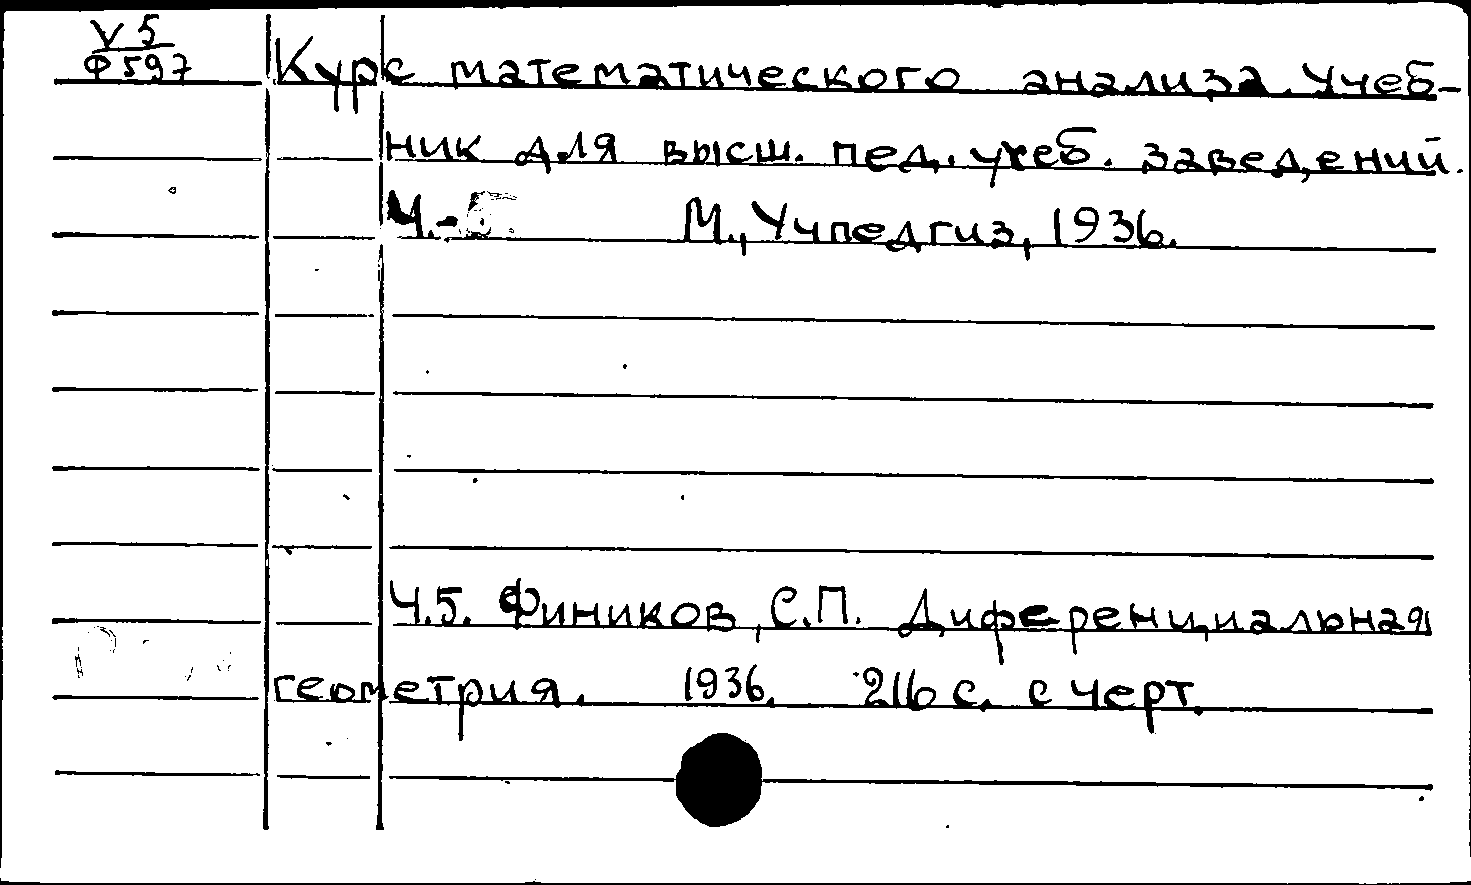 V 5
Ф 597
Курс математического анализа. Учеб-
ник для высш. пед. учеб. заведений.
Ч.-
М., Учпедгиз, 1936.
Ч.5. Фиников, С.П. Диференциальная
геометрия. 1936. 216 с. с черт.